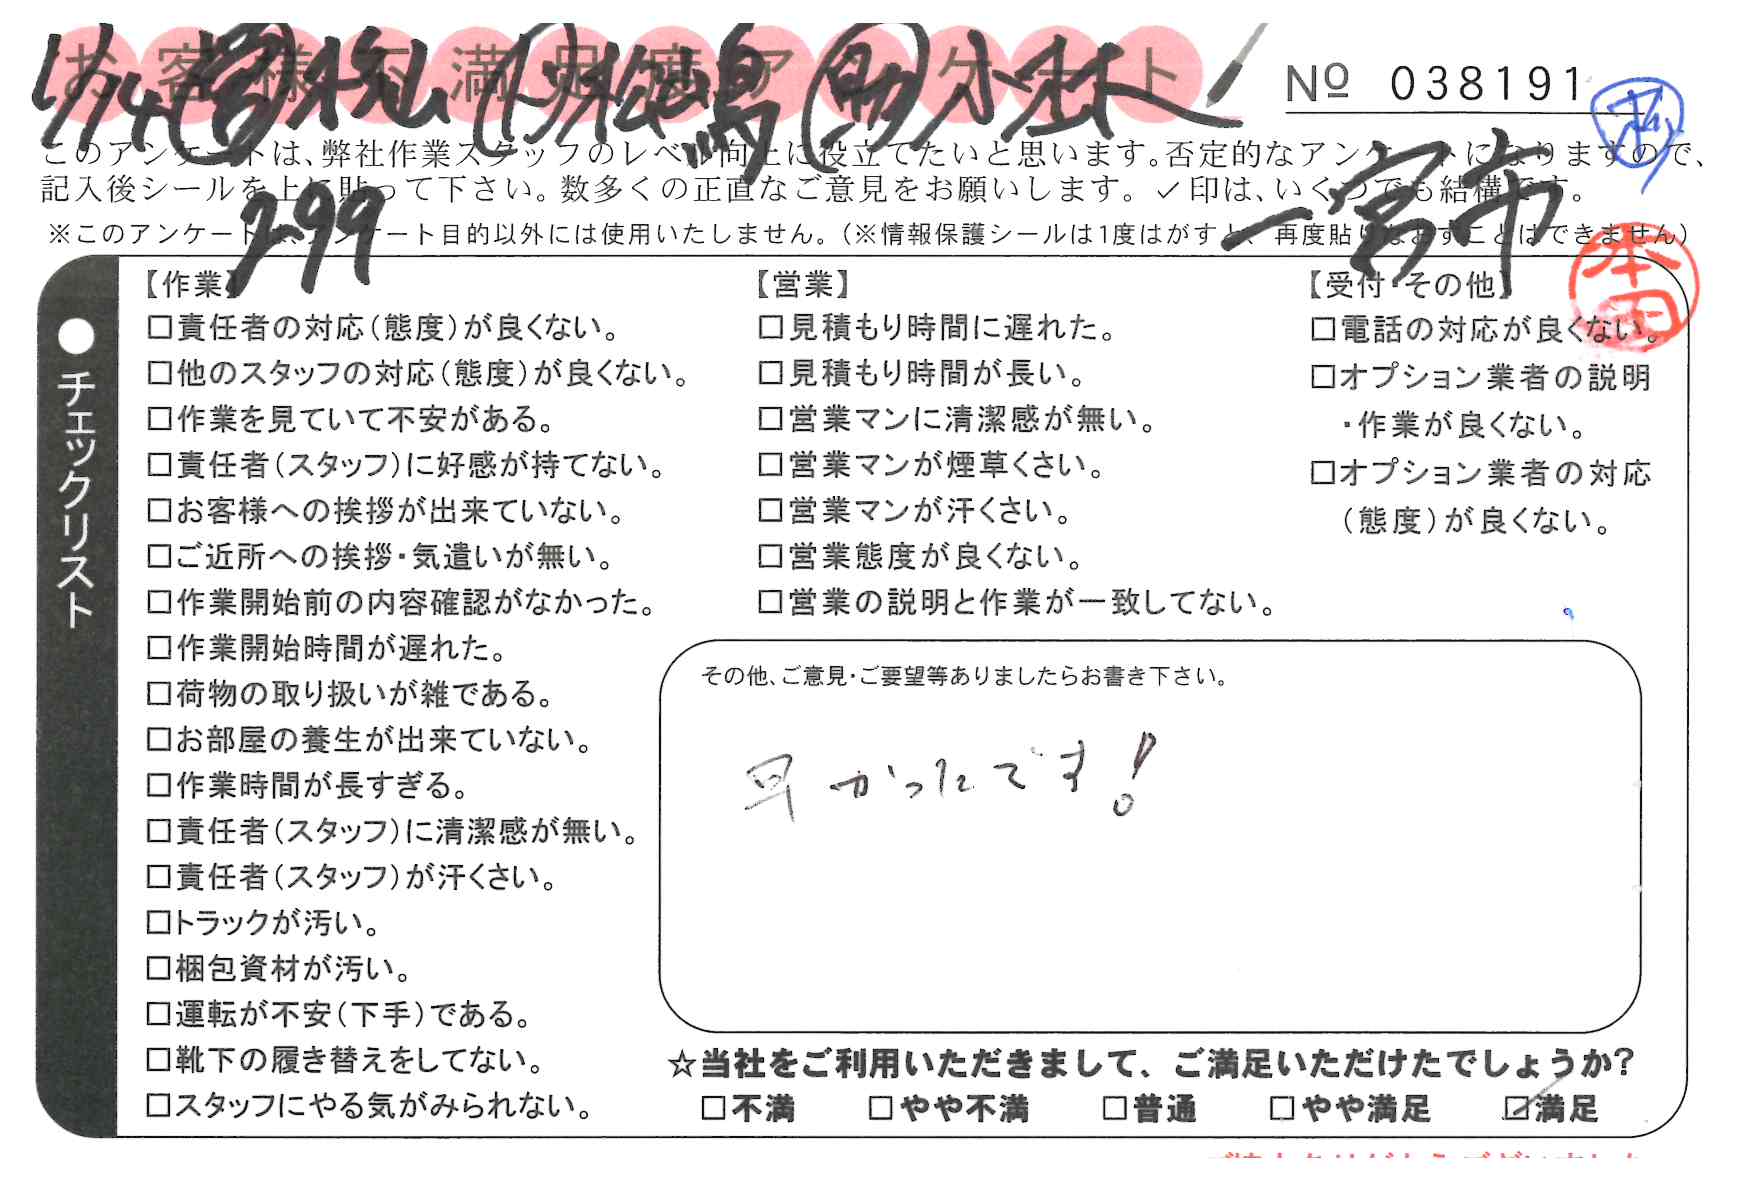 お客様不満足度アンケート
1/14 松鳥 小林
No 038191
このアンケートは、弊社作業スタッフのレベル向上に役立てたいと思います。否定的なアンケートになりますので、
記入後シールを上に貼って下さい。数多くの正直なご意見をお願いします。✓印は、いくつでも結構です。
299
一宮市
※このアンケートは、アンケート目的以外には使用いたしません。(※情報保護シールは1度はがすと、再度貼りなおすことはできません)
本田
●チェックリスト
【作業】
□責任者の対応(態度)が良くない。
□他のスタッフの対応(態度)が良くない。
□作業を見ていて不安がある。
□責任者(スタッフ)に好感が持てない。
□お客様への挨拶が出来ていない。
□ご近所への挨拶・気遣いが無い。
□作業開始前の内容確認がなかった。
□作業開始時間が遅れた。
□荷物の取り扱いが雑である。
□お部屋の養生が出来ていない。
□作業時間が長すぎる。
□責任者(スタッフ)に清潔感が無い。
□責任者(スタッフ)が汗くさい。
□トラックが汚い。
□梱包資材が汚い。
□運転が不安(下手)である。
□靴下の履き替えをしてない。
□スタッフにやる気がみられない。
【営業】
□見積もり時間に遅れた。
□見積もり時間が長い。
□営業マンに清潔感が無い。
□営業マンが煙草くさい。
□営業マンが汗くさい。
□営業態度が良くない。
□営業の説明と作業が一致してない。
【受付・その他】
□電話の対応が良くない。
□オプション業者の説明
・作業が良くない。
□オプション業者の対応
(態度)が良くない。
その他、ご意見・ご要望等ありましたらお書き下さい。
早かったです!
☆当社をご利用いただきまして、ご満足いただけたでしょうか?
□不満 □やや不満 □普通 □やや満足 ☑満足